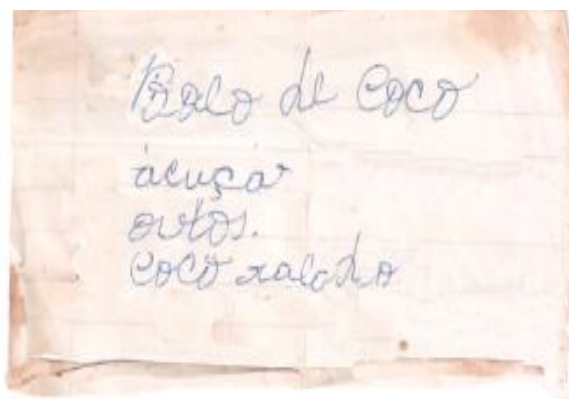 Bolo de Coco
acuçar
ovtos.
Coco ralado